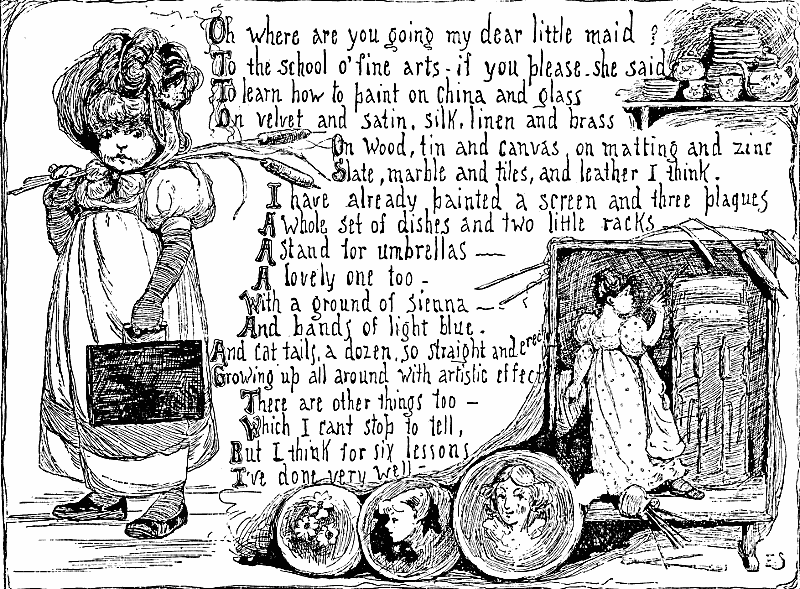 Oh where are you going my dear little maid ?
To the school o' fine arts - if you please - she said
To learn how to paint on China and glass
On velvet and satin, silk, linen and brass
On wood, tin and canvas, on matting and zinc
Slate, marble and tiles, and leather I think.
I have already painted a screen and three plaques
A whole set of dishes and two little racks
A stand for umbrellas —
A lovely one too -
With a ground of Sienna —
And bands of light blue.
And cat tails, a dozen, so straight and erect
Growing up all around with artistic effect
There are other things too —
Which I cant stop to tell,
But I think for six lessons
I've done very well -
ES